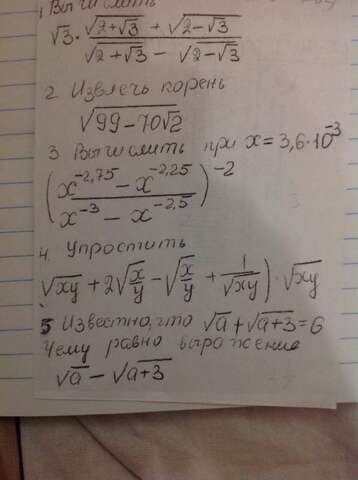 1. Вычислить
√3 · (√(2+√3) + √(2-√3)) / (√(2+√3) - √(2-√3))
2. Извлечь корень
√(99-70√2)
3. Вычислить при x = 3,6·10⁻³
((x^-2,75 - x^-2,25) / (x^-3 - x^-2,5))^-2
4. Упростить
√xy + 2√(x/y) - √(x/y + 1/√xy) · √xy
5 Известно, что √a + √(a+3) = 6
Чему равно выражение
√a - √(a+3)